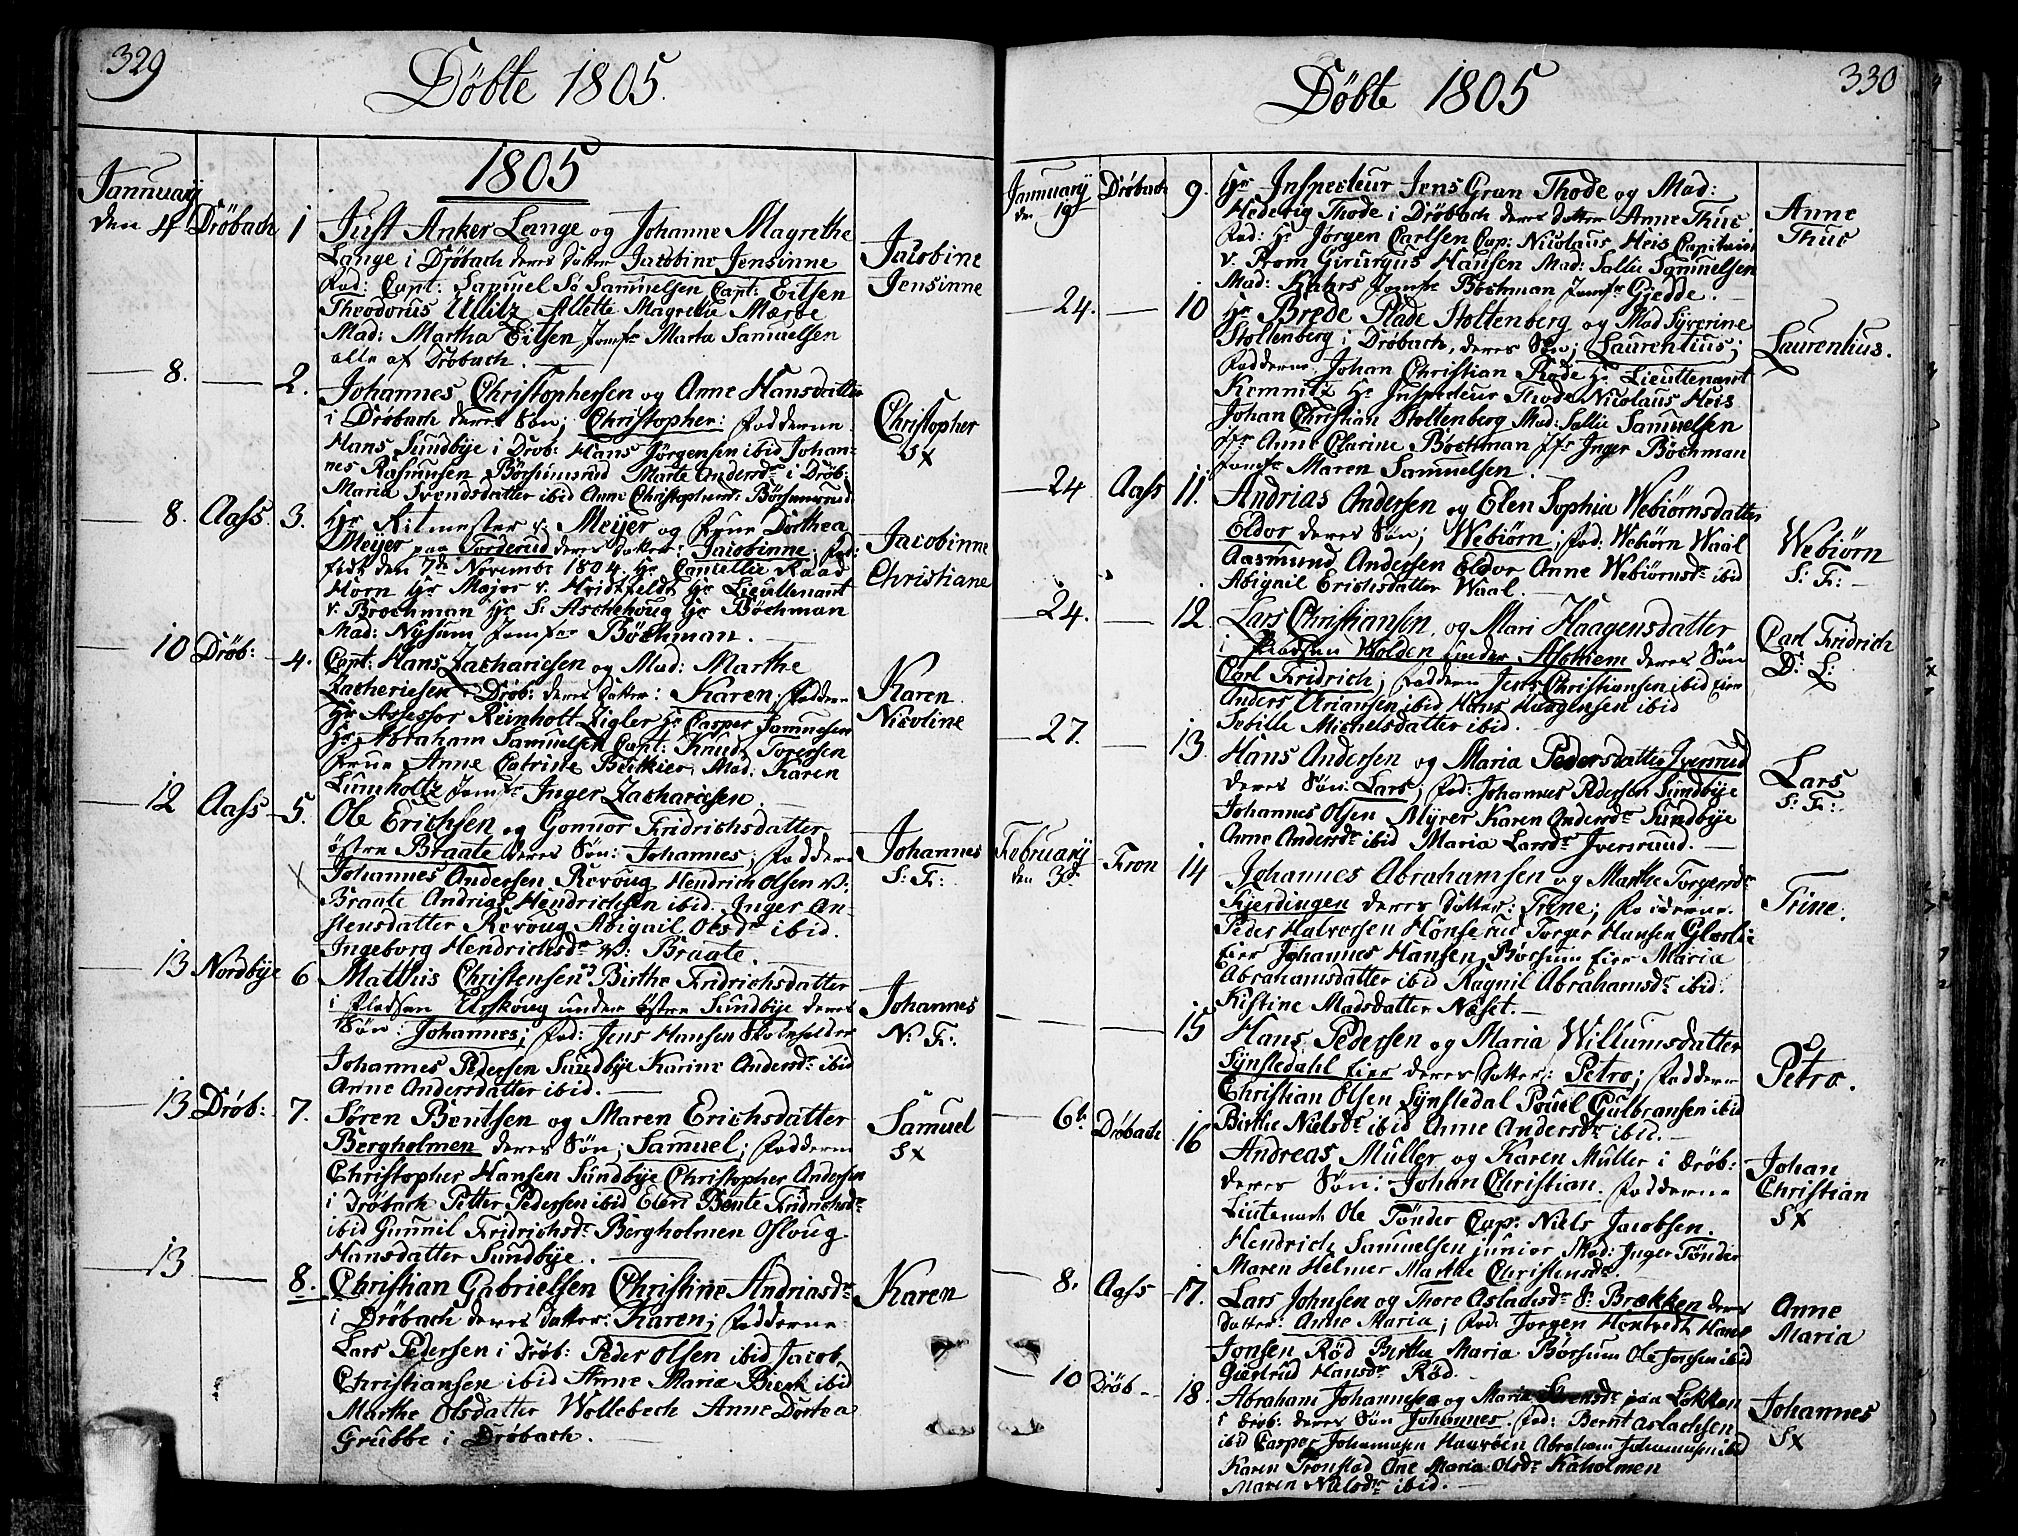 329
Döbte 1805.
1805
Januarÿ
den 4 Dröbach 1
Just Anker Lange og Johanne Magrethe
Lange i Dröbach deres datter Jacobine Jensinne
Fad: Capt: Samuel Sö Samuelsen Capt: Eilsen
Theodorus Ullitz Allette Magrethe
Mad: Martha Eilsen Jomfr Marta Samuelsen
alle af Dröbach.
Jacobine
Jensinne
8. 2.
Johannes Christophersen og Anne Hansdatter
i Dröbach deres Sön; Christopher: Fadderne
Hans Sundbÿe i Drob: Hans Jörgensen ibid Johan-
nes Rasmusen Börsumsrud Marte Andersdr i Dröb:
Maria Svendsdatter ibid Anne Christophersd: Börsumsrud
Christopher
Sx
8. Aass. 3.
Hr Ritmester v. Meÿer og Frue Dorthea
Meÿer paa Torderud deres datter: Jacobinne; Fad:
födt den 7de November 1804. Hr Cancellie Raad
Horn Hr Major v. Hvidtfeldt Hr Lieuttenant
v. Brochman Hr S: Aschehoug Hr Böchman
Mad: Nÿsum Jomfr Böchman.
Jacobinne
Christiane
10 Dröb: 4.
Capt: Hans Zachariesen og Mad: Marthe
Zacheriesen Dröb: deres datter: Karen; Faddere
Hr Assessor Reinholt Zigler Hr Casper Samuesen
Hr Abraham Samuelsen Capt: Knud Torersen
Frue Anne Catrine Mad: Karen
Lumholtz Jomfr Inger Zachariesen.
Karen
Nicoline
12 Aass 5.
Ole Erichsen og Gonnor Fridrichsdatter
östre Braate deres Sön: Johannes; Faddere
Johannes Andersen Revoug Hendrich Olsen V:
Braate Andrias Hendrichsen ibid Inger An-
stensdatter Revoug Abigail Olsdr ibid.
Ingeborg Hendrichsdr V: Braate.
Johannes
S: F:
13 Nordbÿe 6
Mathis Christensen Birthe Fridrichsdatter
i Pladsen Urskoug under östre Sundbÿe deres
Sön: Johannes; Fad: Jens Hansen Skoleholder
Johannes Pedersen Sundbÿe Karine Andersdr ibid
Anne Andersdatter ibid.
Johannes
N: F:
13 Dröb: 7.
Sören Bentsen og Maren Erichsdatter
Bergholmen deres Sön; Samuel; Fadderne
Christopher Hansen Sundbÿe Christopher Andersen
i Dröbach Petter Pedersen ibid Elen Bente Fridrichsdr
ibid Gunnil Fridrichsdr Bergholmen Osloug
Hansdatter Sundbÿe.
Samuel
Sx
13 8.
Christian Gabrielsen Christine Andriasdr
i Dröbach deres datter: Karen; Fadderne
Lars Pedersen i Dröb: Peder Olsen ibid Jacob
Christiansen ibid Anne Maria Bierk ibid
Marthe Olsdatter Wollebech Anne Dortea
Grubbe i Dröbach.
Karen
330
Döbte 1805
Januarÿ
den 19 Dröbach 9.
Hr Inspecteur Jens Gran Thode og Mad:
Hedevig Thode i Dröbach deres datter Anne Thue
Fad: Hr Jörgen Carlsen Cap: Nicolaus Heis Capitain
v. Prom Girurgus Hansen Mad: Sallie Samuelsen
Mad: Kahrs Jomfr Böchman Jomfr Gjedde.
Anne
Thue
24. 10
Hr Brede Plade Stoltenberg og Mad Syverine
Stoltenberg i Dröbach, deres Sön; Laurentius;
Fadderne: Johan Christian Rode Hr Lieuttenant
Kemnitz Hr Inspecteur Thode Nicolaus Heis
Johan Christian Stoltenberg Mad: Sallie Samuelsen
Jfr Anne Clarine Böchman Jfr Inger Böchman
Jomfr Maren Samuelsen.
Laurentius.
24 Aass 11.
Andrias Andersen og Elen Sophia Webiörnsdatter
Eldor deres Sön; Webiörn; Fad: Webiörn Waal
Aasmund Andersen Eldor Anne Webiörnsdr ibid
Abigail Erichsdatter Waal.
Webiörn
S: F:
24. 12
Lars Christiansen, og Mari Haagensdatter
i Pladsen Wolden under deres Sön
Carl Fridrich; Faddere Jens Christiansen ibid Eier
Anders Ariansen ibid Hans Haagensen ibid
Sobille Michelsdatter ibid.
Carl Fridrich
D: L:
27. 13.
Hans Andersen og Maria Pedersdatter Iversrud
deres Sön: Lars; Fad: Johannes Pedersen Sundbÿe
Johannes Olsen Myrer Karen Andersdr Sundbÿe
Anne Andersdr ibid Maria Larsdr Iversrud.
Lars
S: F:
Februarÿ
den 3d Fron 14
Johannes Abrahamsen og Marthe Torgersdr
Kjerdingen deres datter: Trine; Fadderne.
Peder Halvorsen Hönserus Torger Hansen
Eier Johannes Hansen Börsum Eier Maria
Abrahamsdatter ibid Ragnil Abrahamsdr ibid.
Kistine Madsdatter Næset.
Trine.
15
Hans Pedersen og Maria Willumsdatter
Synstedahl Eier deres datter: Petro; Faddere
Christian Olsen Synstedal Pouel Gulbransen ibid
Birthe Nielsdr ibid Anne Andersdr ibid.
Petro.
6te Dröbach 16
Andreas Müller og Karen Müller i Dröb:
deres Sön: Johan Christian. Fadderne
Lieutenant Ole Tönder Cap: Niels Jacobsen.
Hendrich Samuelsen junior Mad: Inger Tönder
Maren Helmer Marthe Christensdr
Johan
Christian
Sx
8. Aass 17.
Lars Johnsen og Thore Aslachsdr S: Brækken deres
datter: Anne Maria; Fad: Jorgen Hans
Jonsen Röd Birthe Maria Börsum Ole ibid
Giertrud Hansdr Röd.
Anne
Maria
10 Dröb 18.
Abraham Johannesen og Maria paa Lökken
i Dröb: deres Sön Johannes. Fad: Bernt Aslachsen
ibid Casper Johannesen Abraham Johannesen ibid
Karen Tronstad Ane Maria Olsdr Kaholmen
Maren Nielsdr ibid.
Johannes
Sx